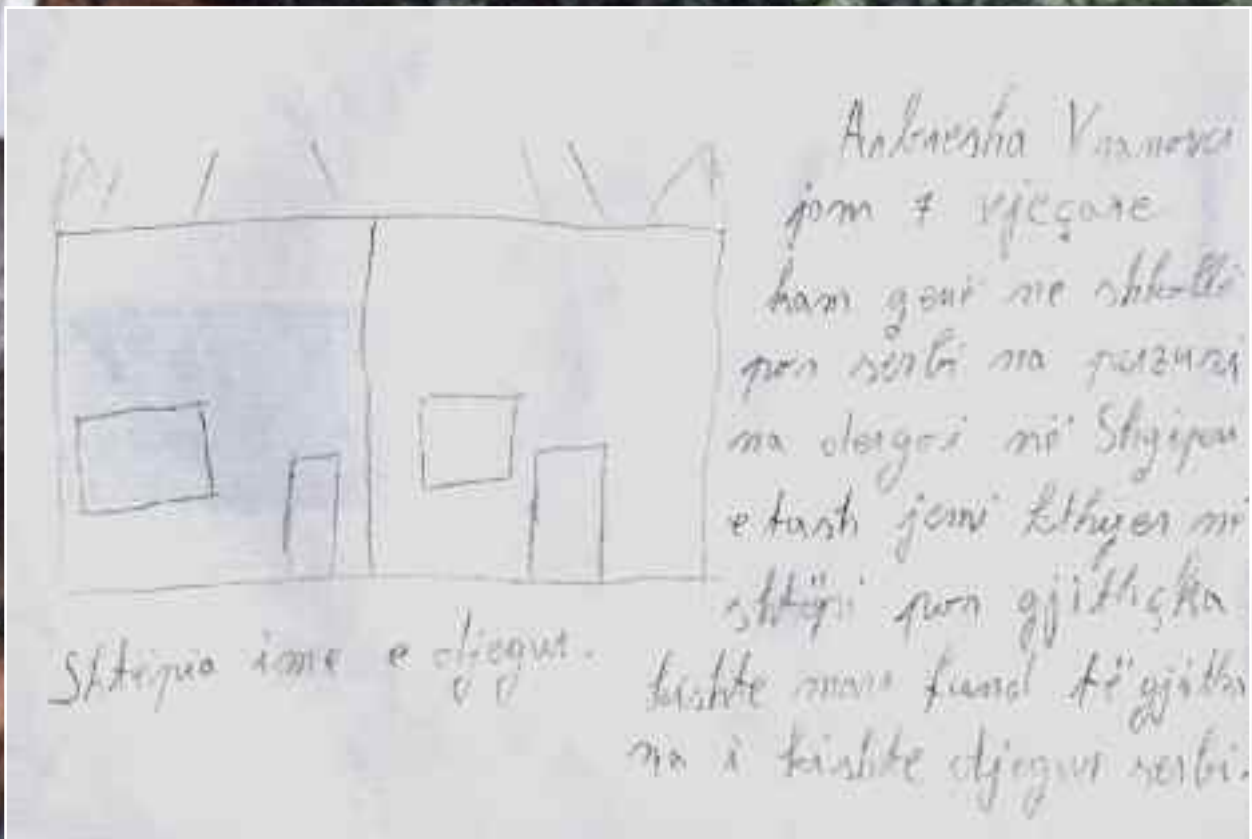 Shtëpia ime e djegur.
jam 7 vjeçare
kam qenë ne shkollë
por serbi na
na dergoi në
e tash jemi kthyer në
shtëpi por gjithçka
kishte marr fund të gjitha
na i kishte djegur serbi.